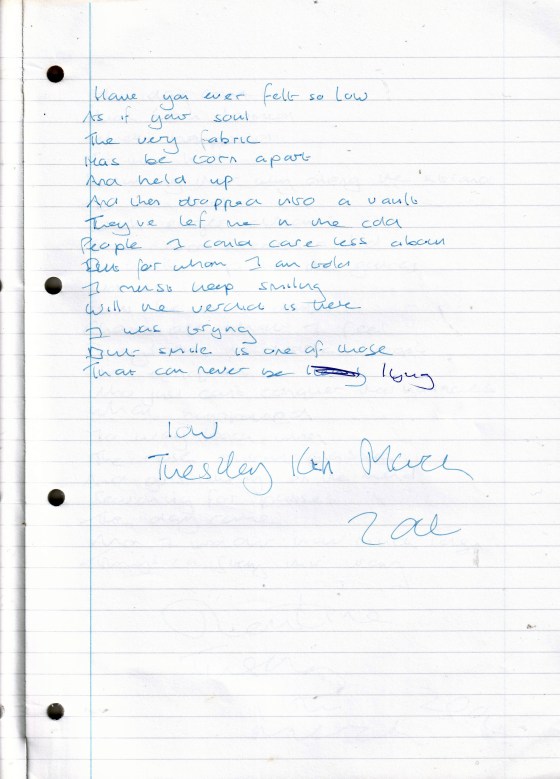 Have you ever felt so low
As if your soul
The very fabric
Has be torn apart
And held up
And then dropped into a vault
They've lef me in the cold
People I could care less about
But for whom I am told
I must keep smiling
Will the verdict is there
I was trying
But smile is one of those
That can never be lying
low
Tuesday March
Zoe